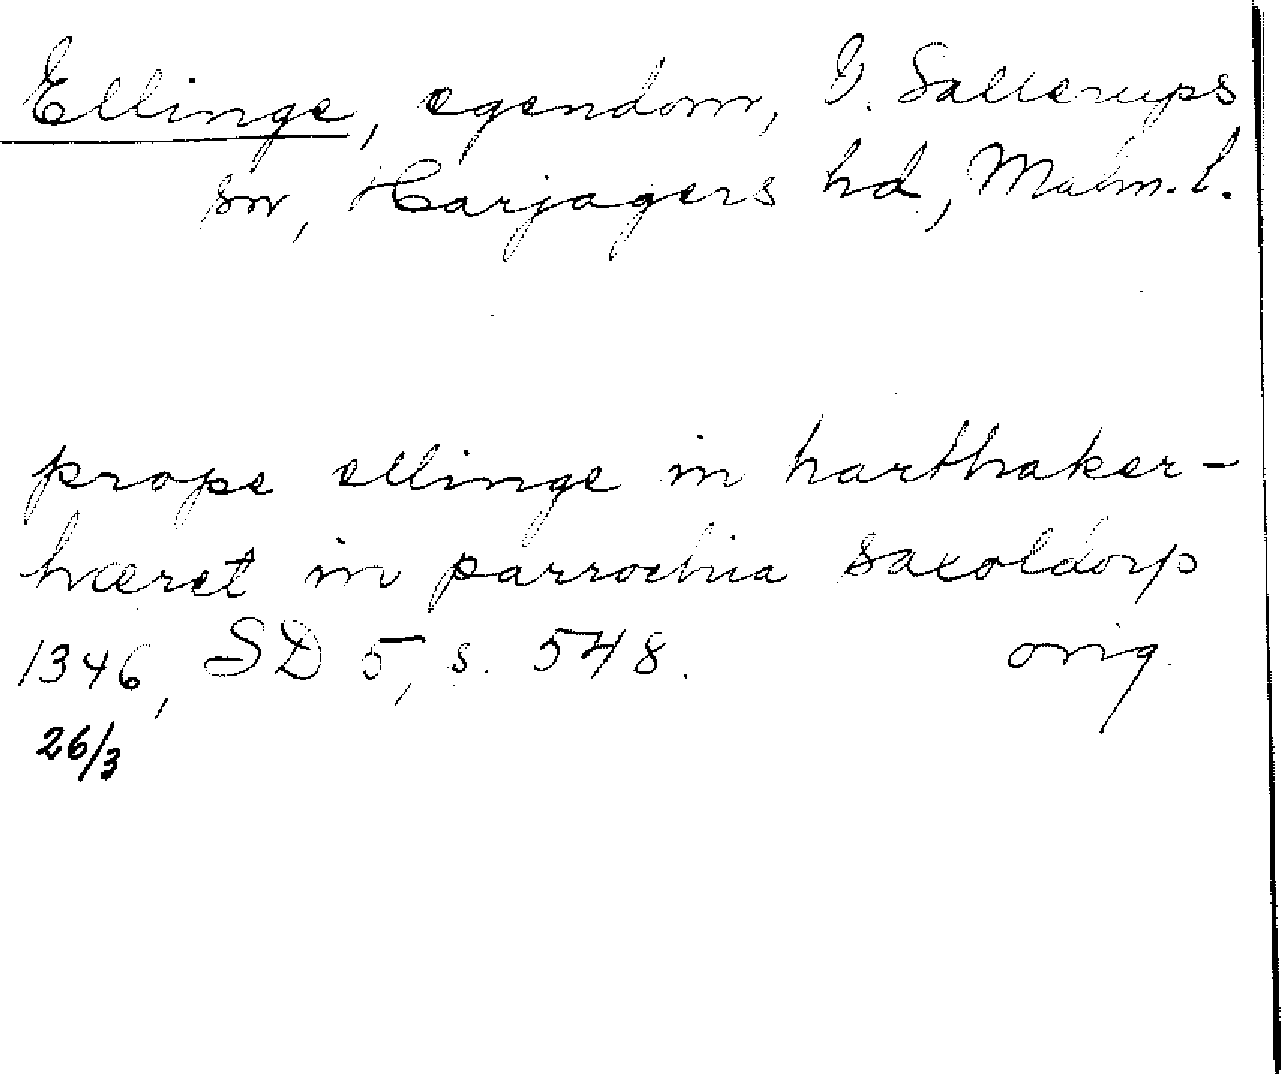 Ellinge, egendom, V. Sallerups
sn, Harjagers hd, Malm. l.
prope ellinge in harthaker-
hæret in parrochia saxoldorp
1346, SD 5, s. 548. orig.
26/3